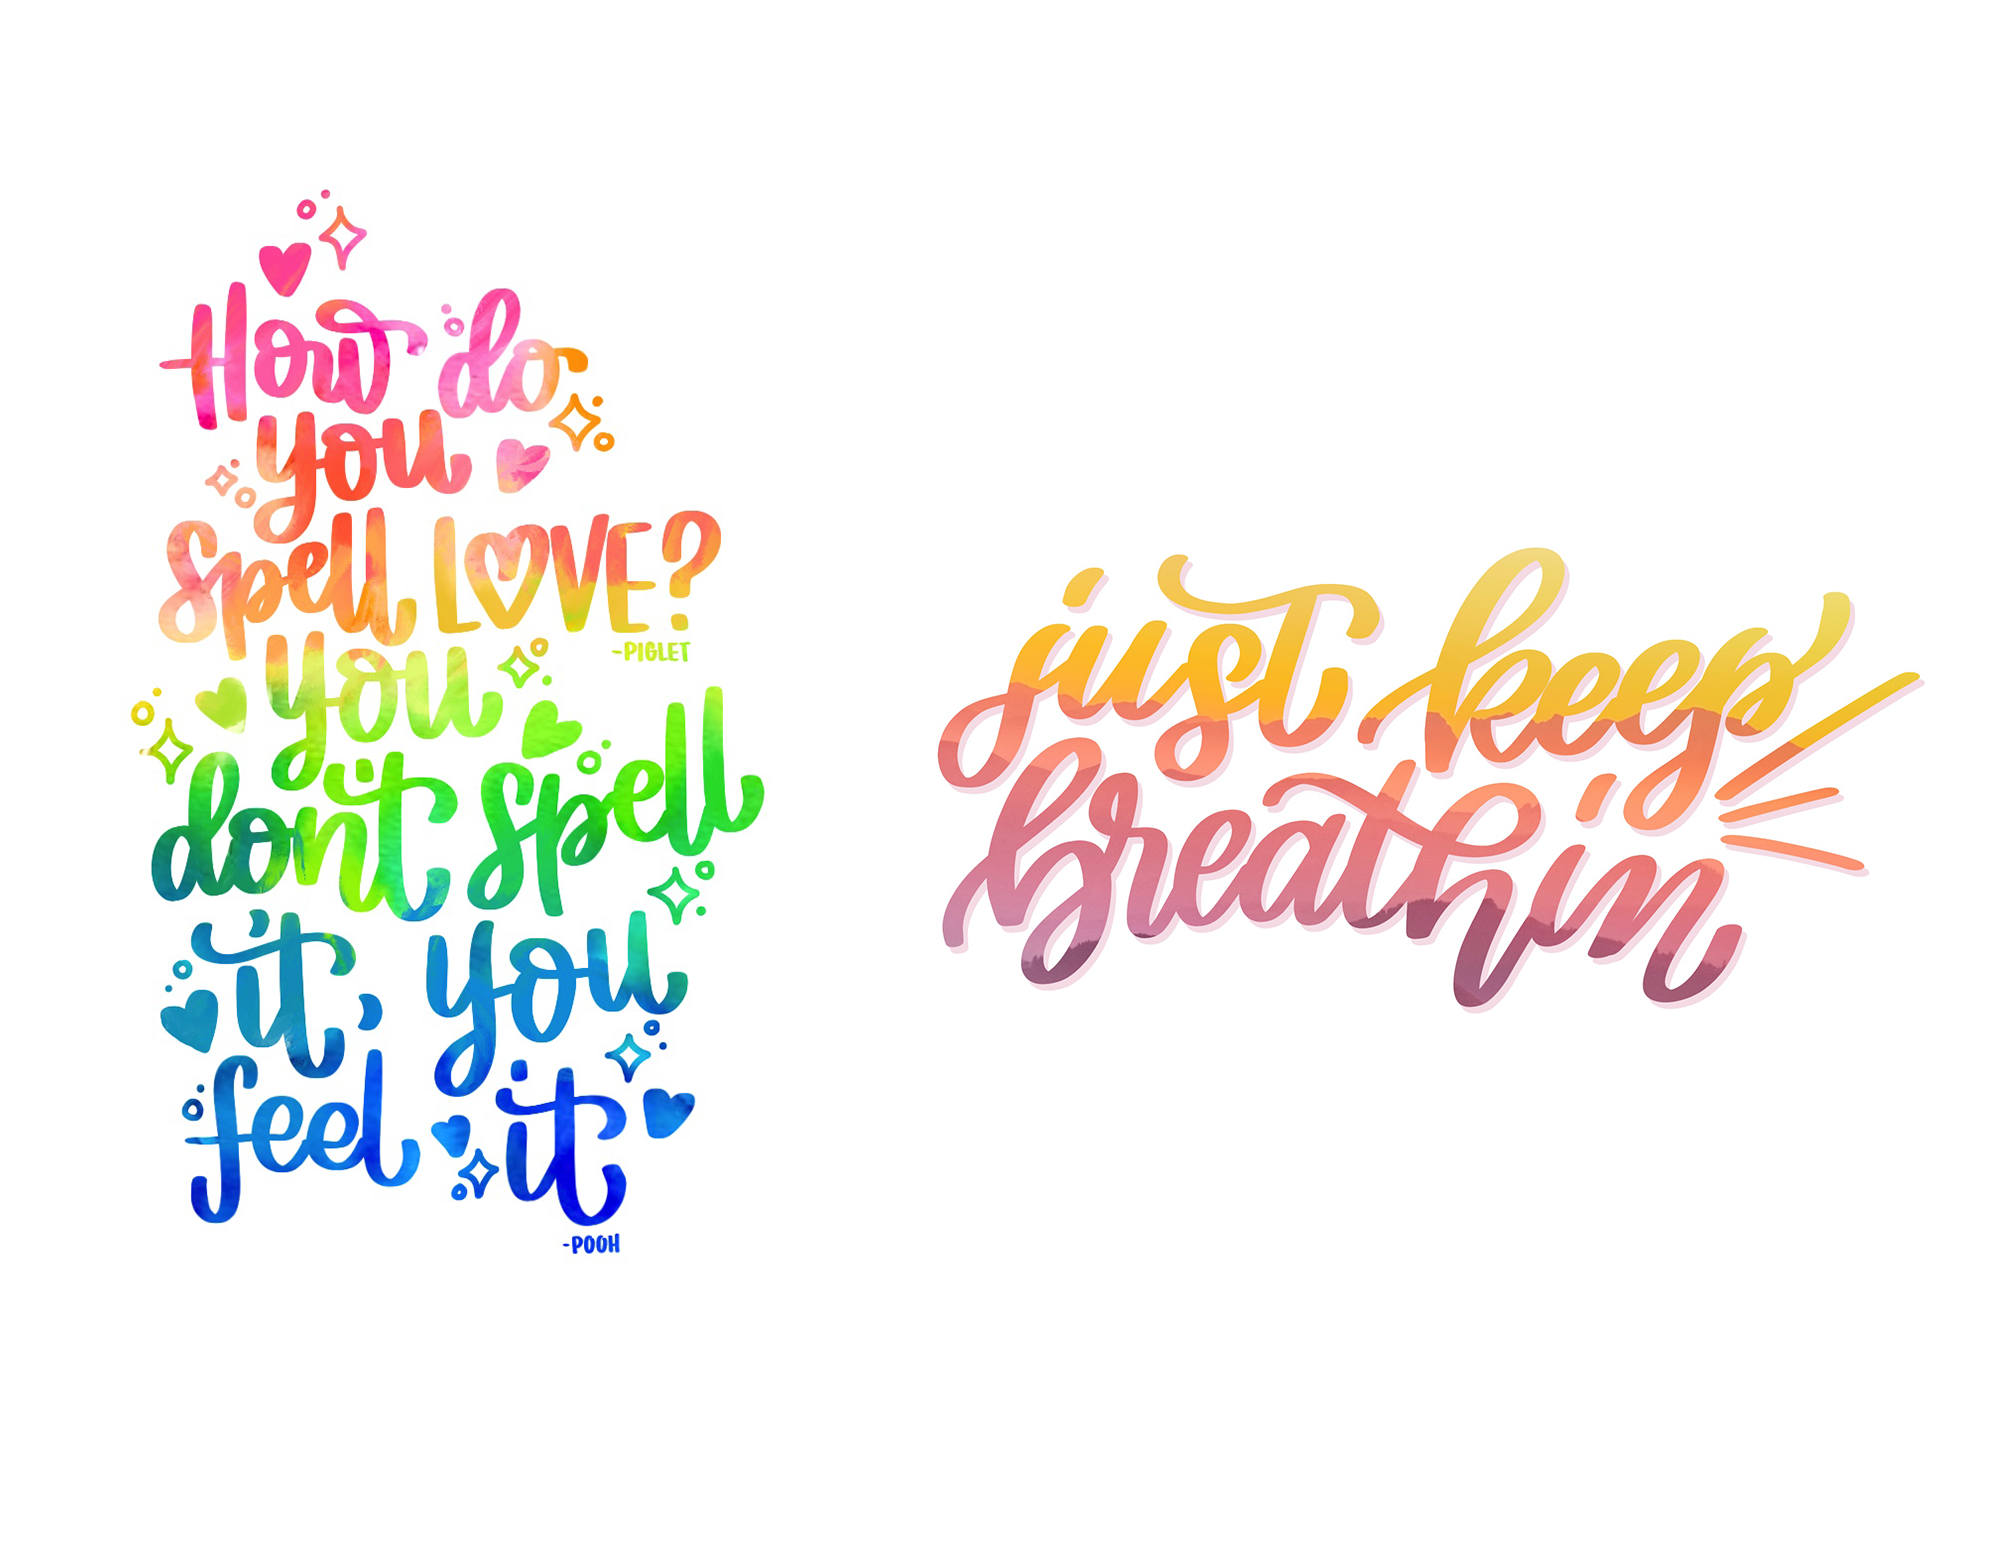 How do
you
spell LOVE?
-PIGLET
you
don't spell
it, you
feel it
-POOH
just keep
breathin